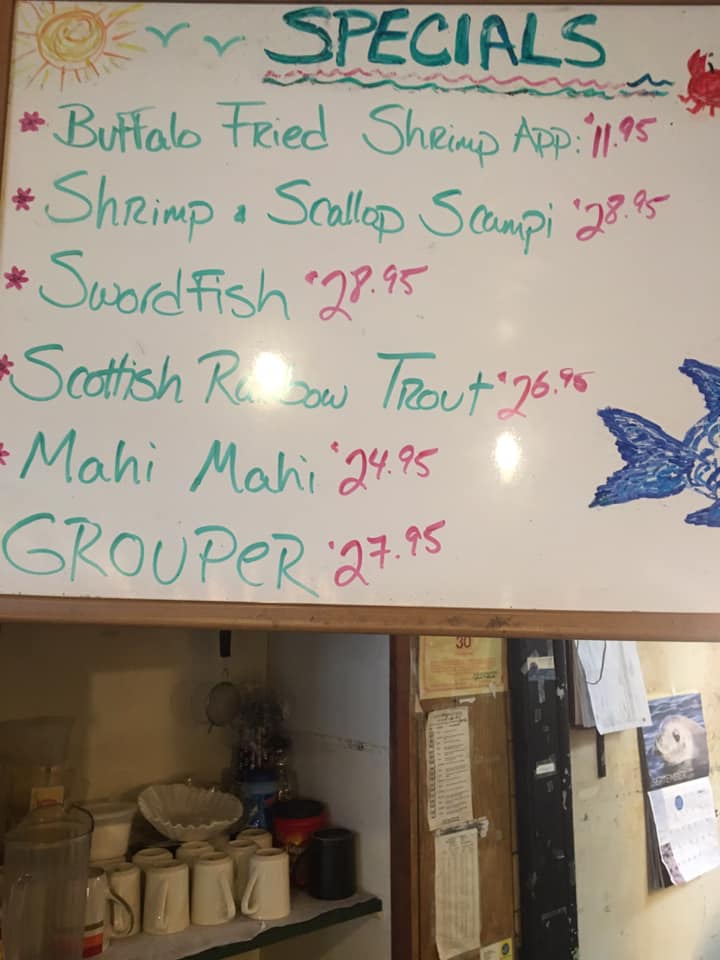 SPECIALS
* Buffalo Fried Shrimp App: $11.95
* Shrimp & Scallop Scampi $28.95
* SwordFish $28.95
* Scottish Rainbow Trout $26.95
* Mahi Mahi $24.95
GROUPER $27.95
30
SEPTEMBER